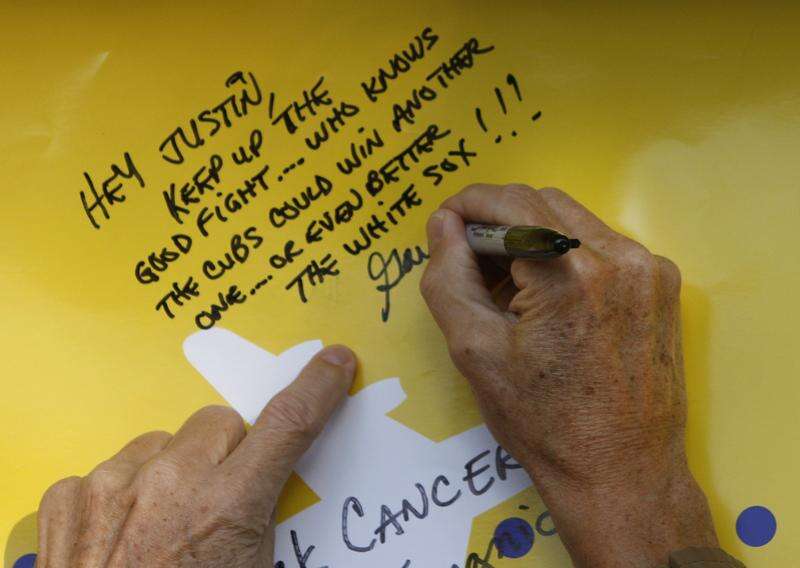 HEY JUSTIN,
KEEP UP THE
GOOD FIGHT.... WHO KNOWS
THE CUBS COULD WIN ANOTHER
ONE.... OR EVEN BETTER
THE WHITE SOX!!!
CANCER